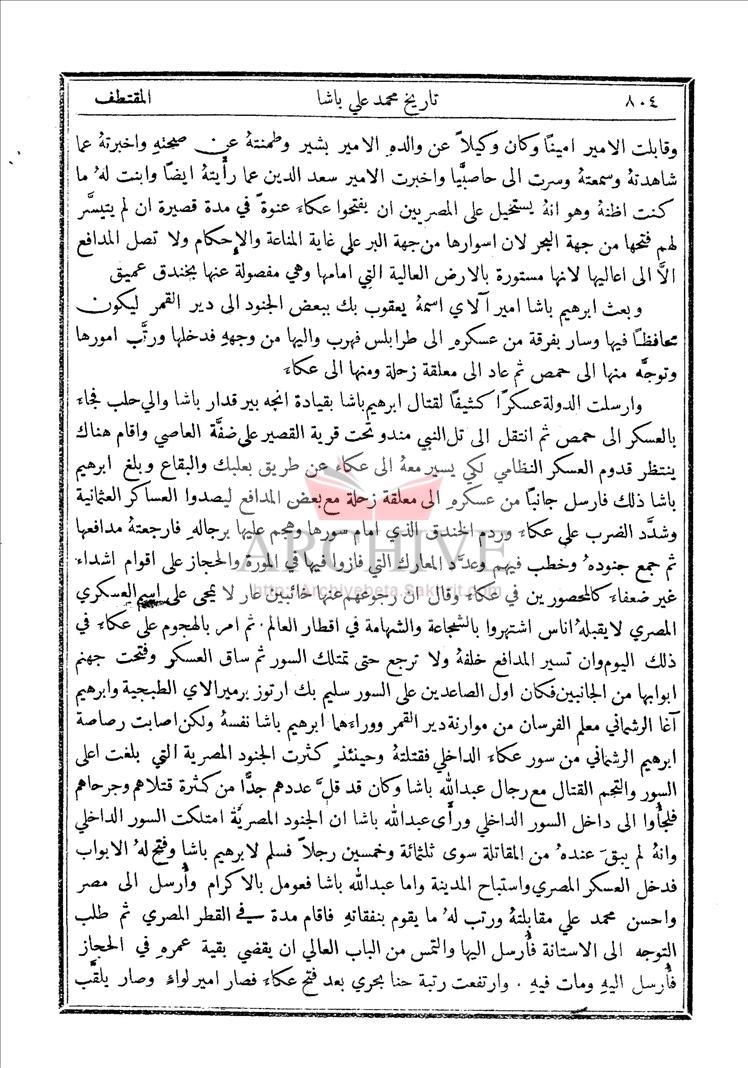 ٨٠٤ تاريخ محمد علي باشا المقتطف
وقابلت الامير امينًا وكان وكيلاً عن والدهِ الامير بشير وطمنتهُ عن صحتهِ واخبرتهُ عما
شاهدتهُ وسمعتهُ وسرت الى حاصبيَّا واخبرت الامير سعد الدين عما رأَيتهُ ايضًا وابنت لهُ ما
كنت اظنهُ وهو انهُ يستحيل على المصريين ان يفتحوا عكاءَ عنوةً في مدة قصيرة ان لم يتيسَّر
لهم فتحها من جهة البحر لان اسوارها من جهة البر على غاية المناعة والإِحكام ولا تصل المدافع
الاَّ الى اعاليها لانها مستورة بالارض العالية التي امامها وهي مفصولة عنها بخندق عميق
وبعث ابرهيم باشا امير آلاي اسمهُ يعقوب بك ببعض الجنود الى دير القمر ليكون
محافظًا فيها وسار بفرقة من عسكرهِ الى طرابلس فهرب واليها من وجههِ فدخلها ورتَّب امورها
وتوجَّه منها الى حمص ثم عاد الى معلقة زحلة ومنها الى عكاءَ
وارسلت الدولة عسكرًا كثيفًا لقتال ابرهيم باشا بقيادة انجه بير قدار باشا والي حلب فجاءَ
بالعسكر الى حمص ثم انتقل الى تل النبي مندو تحت قرية القصير على ضفَّة العاصي واقام هناك
ينتظر قدوم العسكر النظامي لكي يسير معهُ الى عكاءَ عن طريق بعلبك والبقاع وبلغ ابرهيم
باشا ذلك فارسل جانبًا من عسكرهِ الى معلقة زحلة مع بعض المدافع ليصدوا العساكر العثمانية
وشدَّد الضرب على عكاءَ وردم الخندق الذي امام سورها وهجم عليها برجالهِ فارجعتهُ مدافعها
ثم جمع جنودهُ وخطب فيهم وعدَّد المعارك التي فازوا فيها في المورة والحجاز على اقوام اشداءَ
غير ضعفاءَ كالمحصورين في عكاءَ وقال ان رجوعهم عنها خائبين عار لا يمحى على اسم العسكري
المصري لا يقبلهُ اناس اشتهروا بالشجاعة والشهامة في اقطار العالم. ثم امر بالهجوم على عكاءَ في
ذلك اليوم وان تسير المدافع خلفهُ ولا ترجع حتى تمتلك السور ثم ساق العسكر وفتحت جهنم
ابوابها من الجانبين فكان اول الصاعدين على السور سليم بك ارتوز برميرالاي الطبجية وابرهيم
آغا الرشماني معلم الفرسان من موارنة دير القمر ووراءَهما ابرهيم باشا نفسهُ ولكن اصابت رصاصة
ابرهيم الرشماني من سور عكاءَ الداخلي فقتلتهُ وحينئذٍ كثرت الجنود المصرية التي بلغت اعلى
السور والتحم القتال مع رجال عبدالله باشا وكان قد قلَّ عددهم جدًّا من كثرة قتلاهم وجرحاهم
فلجأُوا الى داخل السور الداخلي ورأَى عبدالله باشا ان الجنود المصريَّة امتلكت السور الداخلي
وانهُ لم يبقَ عندهُ من المقاتلة سوى ثلثمائة وخمسين رجلاً فسلم لابرهيم باشا وفتح لهُ الابواب
فدخل العسكر المصري واستباح المدينة واما عبدالله باشا فعومل بالاكرام وأُرسل الى مصر
واحسن محمد علي مقابلتهُ ورتب لهُ ما يقوم بنفقاتهِ فاقام مدة في القطر المصري ثم طلب
التوجه الى الاستانة فأُرسل اليها والتمس من الباب العالي ان يقضي بقية عمرهِ في الحجاز
فأُرسل اليهِ ومات فيهِ . وارتفعت رتبة حنا بحري بعد فتح عكاءَ فصار امير لواءٍ وصار يلقَّب
ARCHIVE
http://Archivebeta.Sakhrit.com